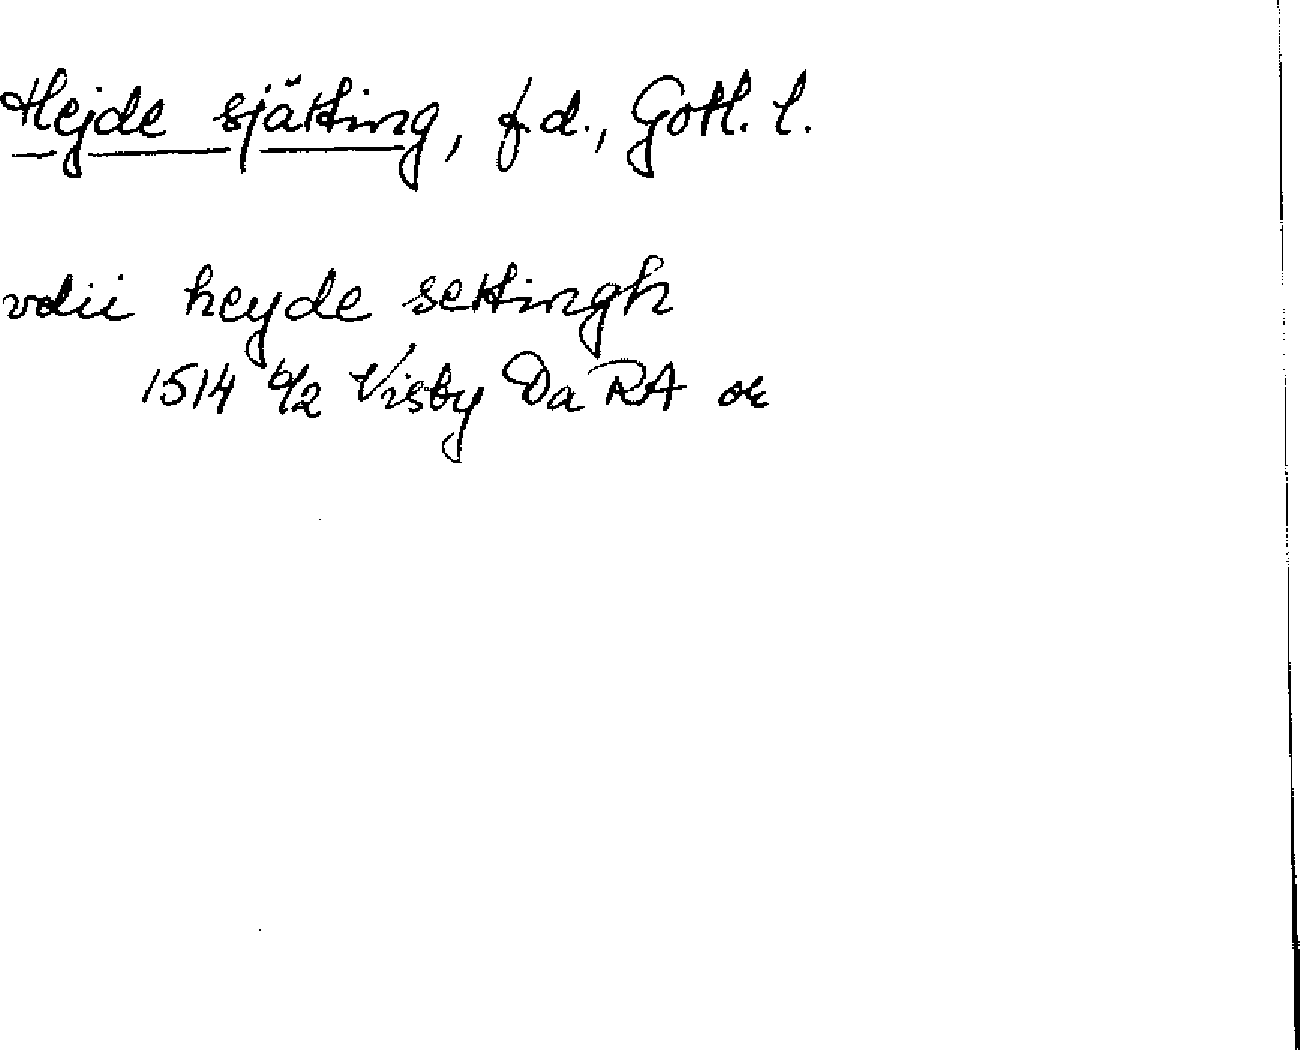 Hejde sjätting, f.d., Gotl. l.
vdii heyde settingh
1514 6/2 Visby Da RA or